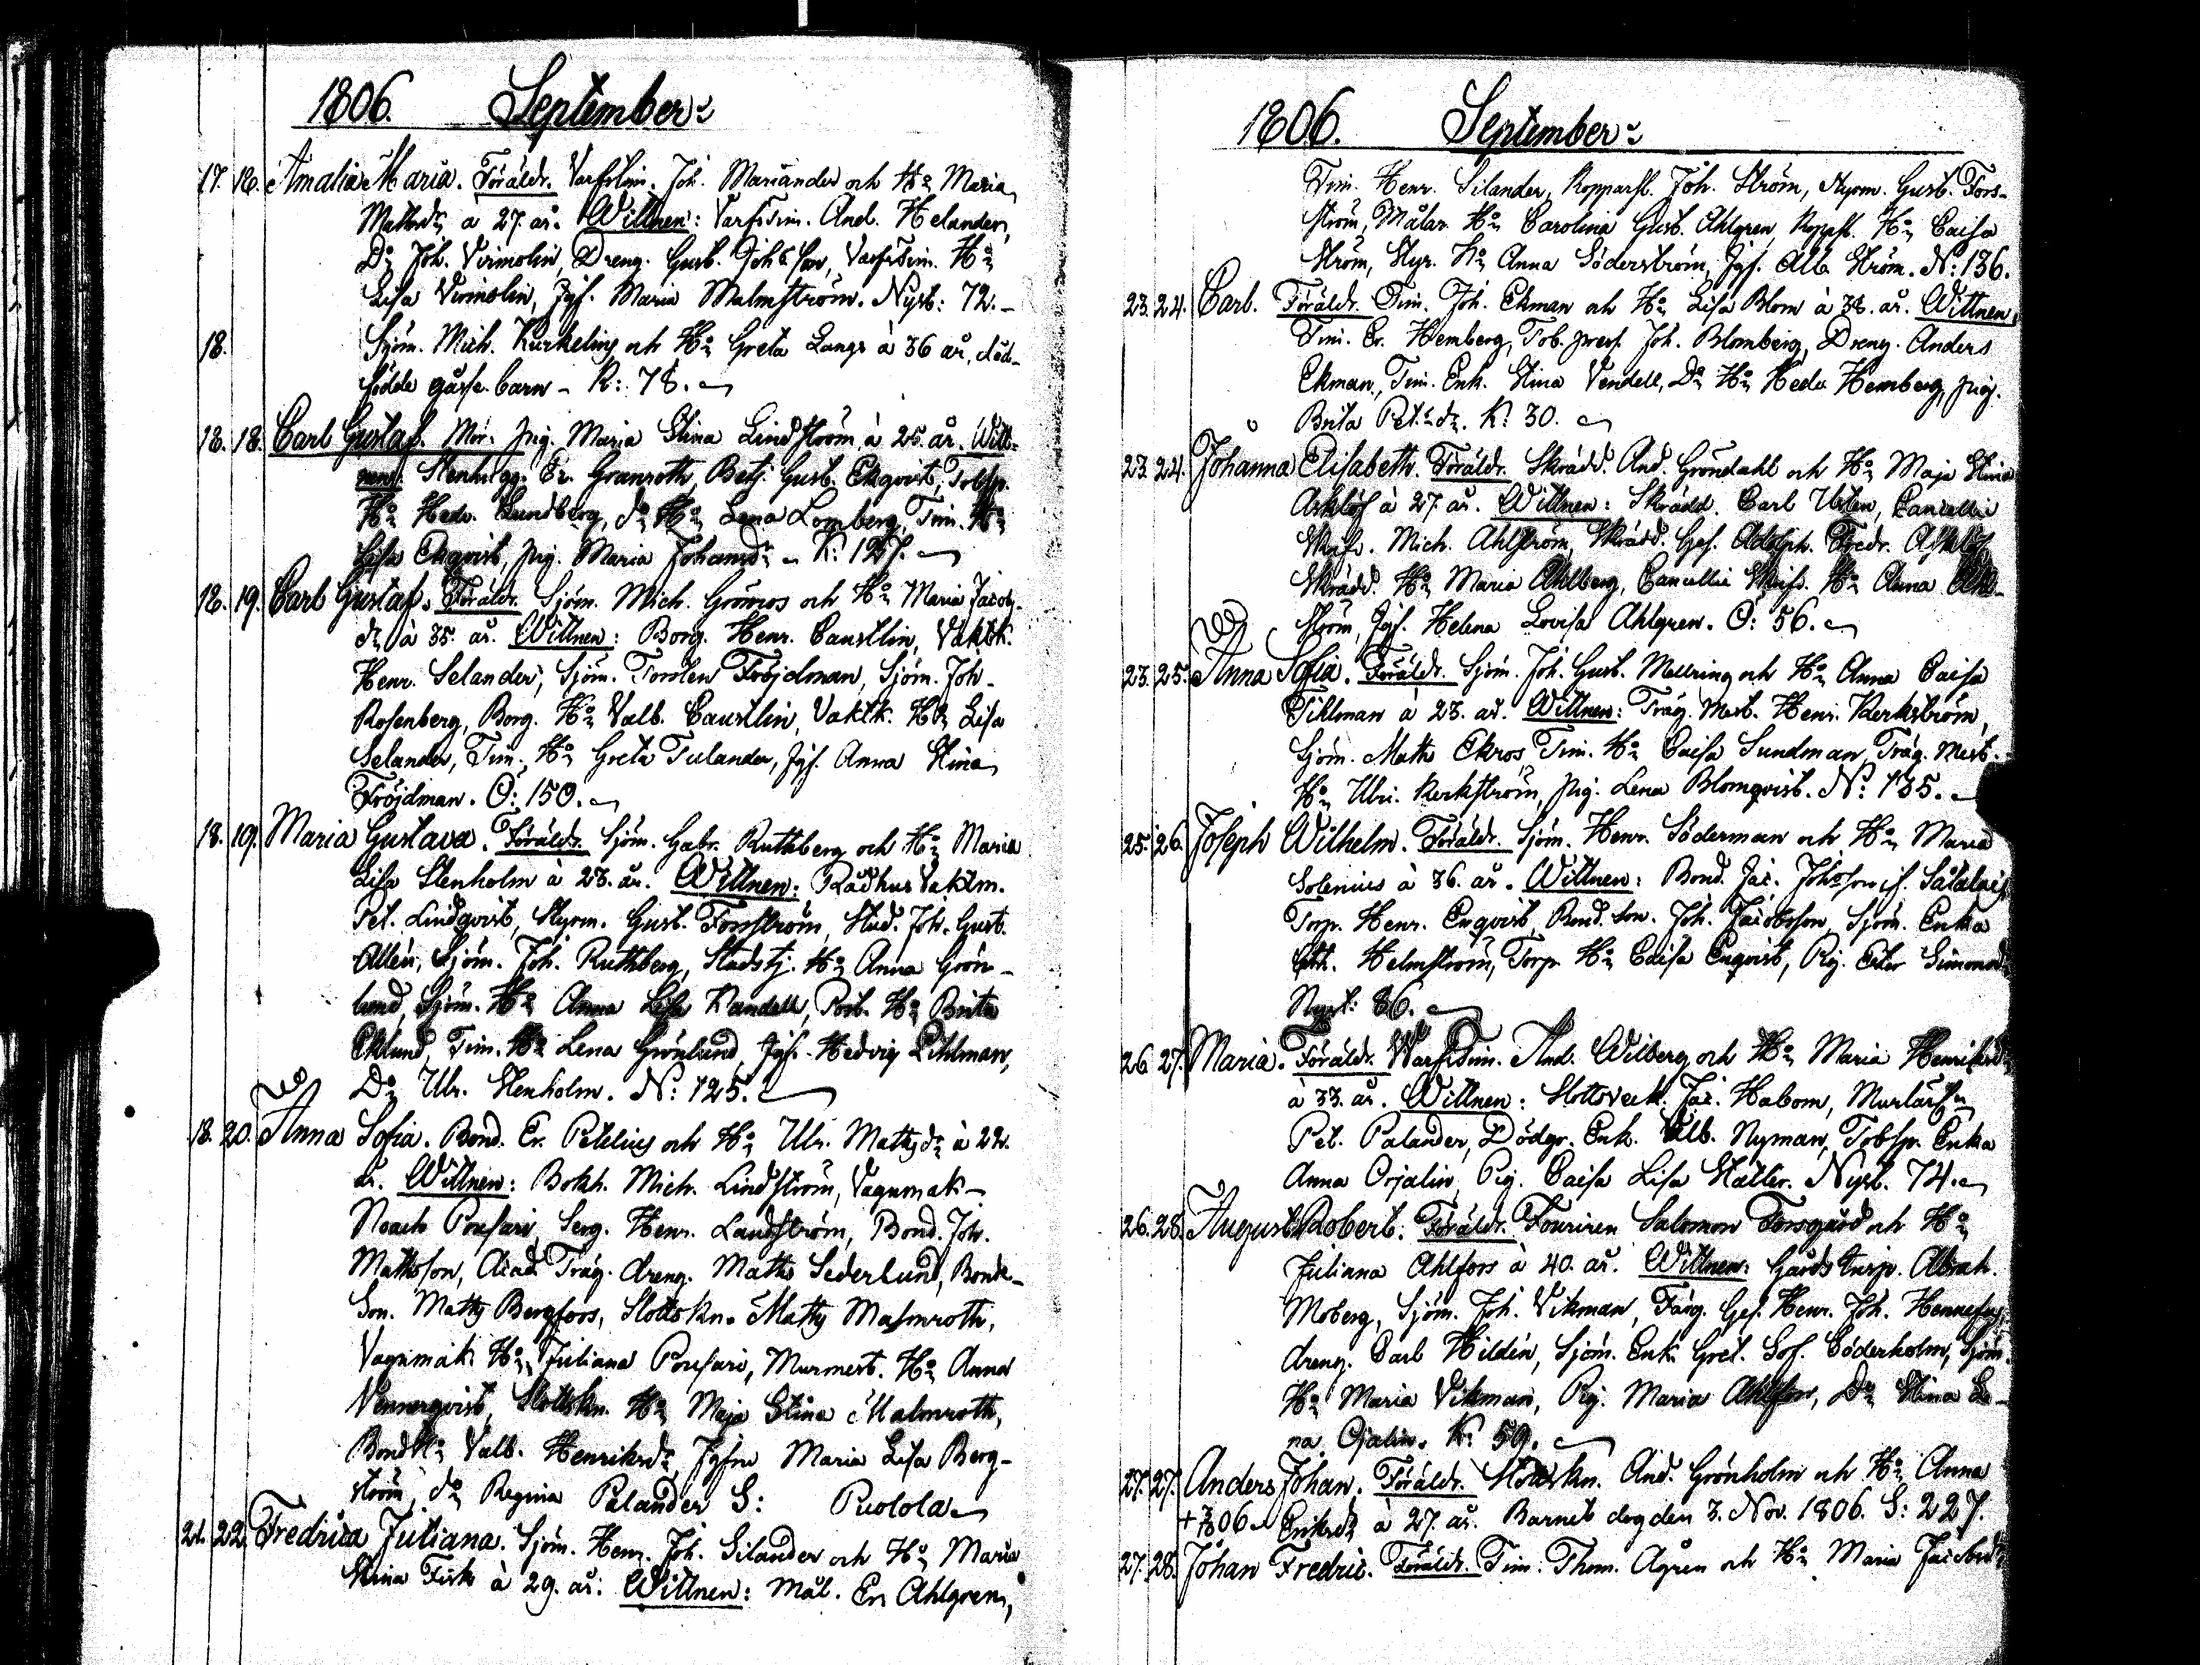 1806. September
17. 18. Amalia Maria. Föräldr. Varfstim. Joh. Mariander och Hu Maria
Mattsdr à 27. år. Wittnen: Varfstim. And. Helander,
Do Joh. Virmolin, Dreng. Gust. Johsson, Varfstim. Hu
Lisa Virmolin, Jgf. Maria Malmström. Nyst: 72.
18. Sjöm. Mich. Kurkelius och Hu Greta Lange à 36 år, död-
födde gåsse barn - K: 78.
18. 18. Carl Gustaf. Mor. pig. Maria Stina Lindström à 25. år. Witt-
nen: Stenhugg. Er. Granroth, Betj. Gust. Ekqvist, Tobsp.
Hu Hedv. Lundberg, do Hu Lena Lomberg, Tim. Hu
Lisa Ekqvist, pig. Maria Johansdr - K: 127.
18. 19. Carl Gustaf. Föräldr. Sjöm. Mich. Grönroos och Hu Maria Jacobs-
dr à 35. år. Wittnen: Borg. Henr. Caustlin, Vaktk.
Henr. Selander, Sjöm. Torsten Fröjdman, Sjöm. Joh.
Rosenberg, Borg. Hu Valb. Caustlin, Vaktk. Hu Lisa
Selander, Tim. Hu Greta Tulander, Jgf. Anna Stina
Fröjdman. O: 150.
18. 19. Maria Gustava. Föräldr. Sjöm. Gabr. Ruthberg och Hu Maria
Lisa Stenholm à 23. år. Wittnen: Rådhus Vaktm.
Pet. Lindqvist, Styrm. Gust. Forsström, Stud. Joh. Gust.
Allén, Sjöm. Joh. Ruthberg, Stadstj. Hu Anna Grön-
lund, Sjöm. Hu Anna Lisa Randell, Post. Hu Brita
Eklund, Tim. Hu Lena Grönlund, Jgfr. Hedvig Lihlman,
Do Ulr. Stenholm. N: 125.
18. 20. Anna Sofia. Bond. Er. Petelius och Hu Ulr. Mathsdr à 22.
år. Wittnen: Bokh. Mich. Lindström, Vagnmak-
Noach Pousari, Serg. Henr. Landström, Bond. Joh.
Mathsson, Acad. Träg. dreng. Maths Sederlund, Bonde-
Son. Maths Bergfors, Slottskn. Maths Malmroth,
Vagnmak Hu Juliana Pousari, Murmest. Hu Anna
Vennerqvist, Slottskn. Hu Maja Stina Malmroth,
Bond Hu Valb. Henriksdr Jgfrn Maria Lisa Berg-
ström, do Regina Palander S: Puolola
21. 22. Fredrica Juliana. Sjöm. Henr. Joh. Silander och Hu Maria
Stina Fisk à 29. år: Wittnen: Mål. Er. Ahlgren,
1806. September
Tim. Henr. Silander, Kopparsl. Joh. Ström, Styrm. Gust. Fors-
ström, Målar Hu Carolina Gust. Ahlgren, Koppsl. Hu Caisa
Ström, Styr. Hu Anna Söderström, Jgf. Alb. Ström. N: 136.
23. 24. Carl. Föräldr. Tim. Joh. Ekman och Hu Lisa Blom à 38. år. Wittnen:
Tim. Er. Hemberg, Tob. press. Joh. Blomberg, Dreng. Anders
Ekman, Tim. Enk. Stina Vendell, Do Hu Hedv. Hemberg, pig.
Brita Pet:dr. K: 30.
23. 24. Johanna Elisabeth. Föräldr. Skrädd. And. Gröndahl och Hu Maja Stina
Asklöf à 27. år. Wittnen: Skrädd. Carl Ulsten, Cancellie
Skrif. Mich. Ahlström, Skrädd. Ges. Adolph. Fredr. Asklöf,
Skrädd. Hu Maria Ahlberg, Cancellie Skrif. Hu Anna Ahl-
ström, Jgf. Helena Lovisa Ahlgren. O: 56.
23. 25. Anna Sofia. Föräldr. Sjöm. Joh. Gust. Mellring och Hu Anna Caisa
Tihlman à 23. år. Wittnen: Träg. Mest. Henr. Kerkström,
Sjöm. Maths Ekros, Tim. Hu Caisa Sundman, Träg. Mest.
Hu Ulri. Kerkström, pig. Lena Blomqvist. N: 135.
25. 26. Joseph Wilhelm. Föräldr. Sjöm. Henr. Söderman och Hu Maria
Solenius à 36. år. Wittnen: Bond. Jac. Johsson if.
Torp. Henr. Enqvist, Bond. son. Joh. Jacobsson, Sjöm. Enka
Helmström, Torp Hu Caisa Enqvist, Pig. Ester Simonsdr
Nyst: 86.
26. 27. Maria. Föräldr. Warfstim. And. Wiberg och Hu Maria Henriksdr
à 33. år. Wittnen: Slottsveckt. Jac. Habom, Murlärl.
Pet. Palander, Dödgr. Enk. Valb. Nyman, Tobsp. Enka
Anna Orjalin, Pig. Caisa Lisa Ställer. Nyst. 74.
26. 28. August Robert: Föräldr. Fouriren Salomon Forsgård och Hu
Juliana Ahlfors à 40. år. Wittnen: Gårds Insp. Abrah.
Moberg, Sjöm. Joh. Vikman, Färg. Ges. Henr. Joh.
dreng. Carl Hildén, Sjöm. Enk. Gret. Sof. Söderholm, Sjöm.
Hu Maria Vikman, Pig. Maria Ahlfors, Do Stina Le-
na Ojalin. K: 59.
27. 27. Anders Johan. Föräldr. Slottskn. And. Grönholm och Hu Anna
Eriksdr à 27. år. Barnet dog den 3. Nov. 1806. S: 227.
27. 28. Johan Fredric. Föräldr. Tim. Thom. Ågren och Hu Maria Jacobsdr